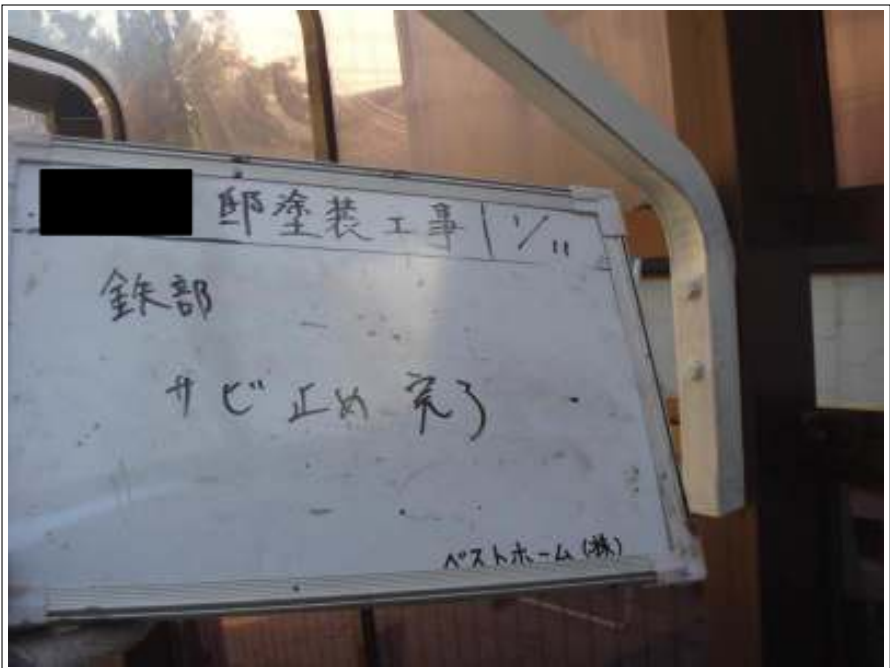 邸塗装工事 1/11
鉄部
サビ止め 完了
ベストホーム(株)